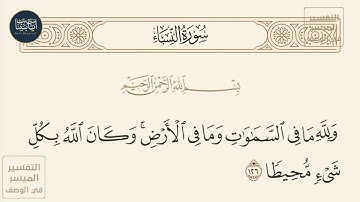 سُورَةُ النِّسَاءِ
بِسْمِ اللَّهِ الرَّحْمَٰنِ الرَّحِيمِ
وَلِلَّهِ مَا فِي السَّمَٰوَٰتِ وَمَا فِي الْأَرْضِ ۚ وَكَانَ اللَّهُ بِكُلِّ
شَيْءٍ مُّحِيطًا ١٢٦
التفسير
الميسر
في الوصف